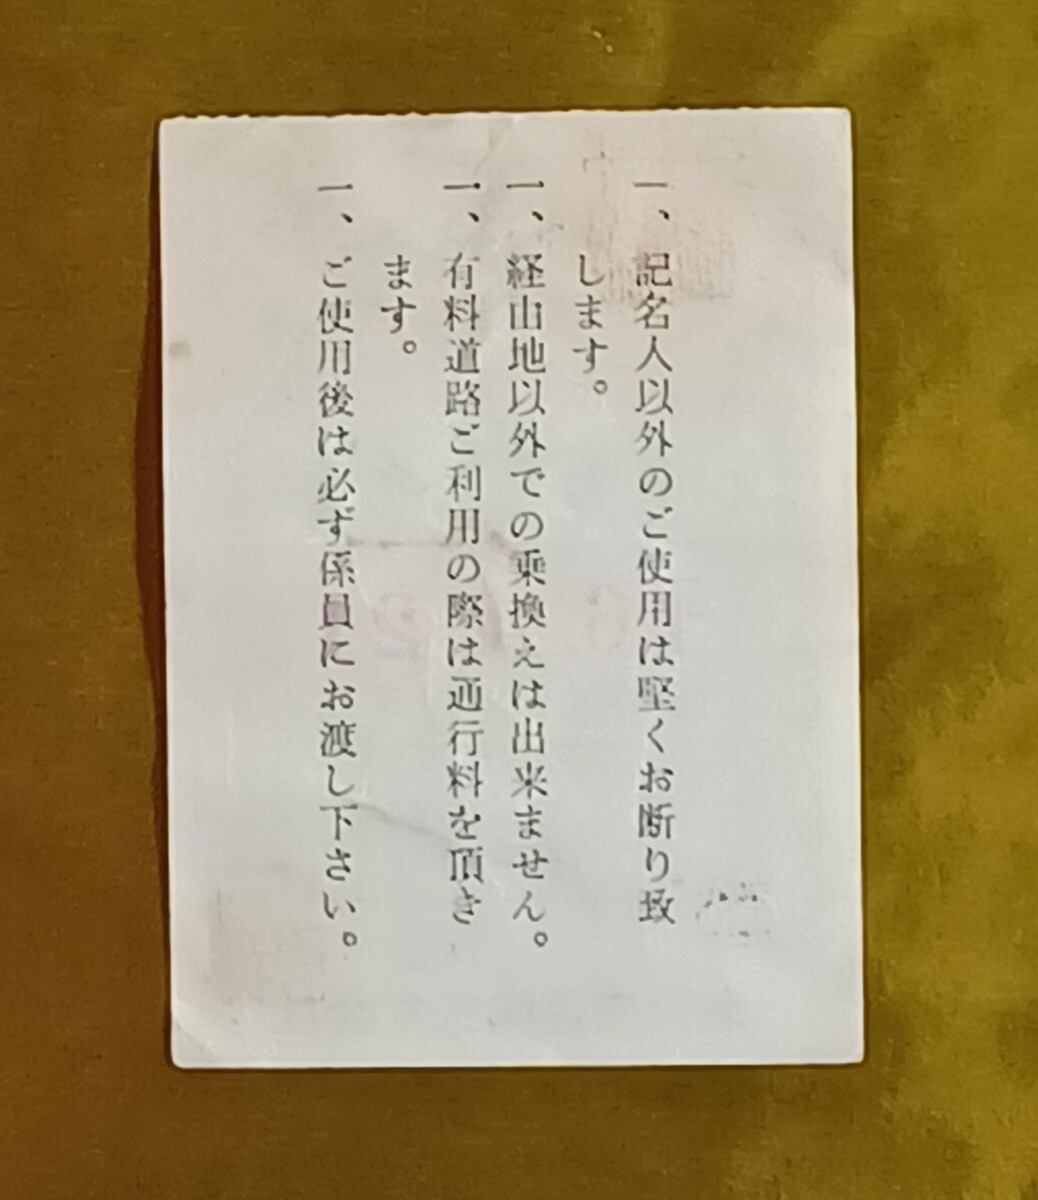 一、記名人以外のご使用は堅くお断り致
します。
一、経由地以外での乗換えは出来ません。
一、有料道路ご利用の際は通行料を頂き
ます。
一、ご使用後は必ず係員にお渡し下さい。